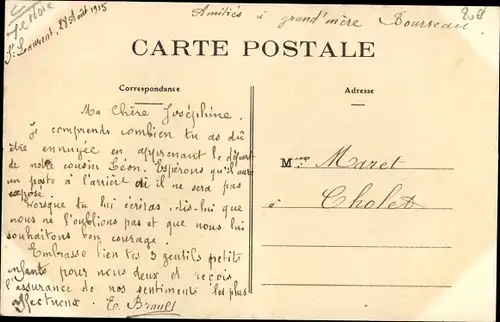 Amitiés à grand'mère Bourreau
St Laurent, 28 Août 1915
CARTE POSTALE
Correspondance
Adresse
Ma Chère Joséphine.
Je comprends combien tu as dû
être ennuyée en apprenant le départ
de notre cousin Léon. Espérons qu'il aura
un poste à l'arrière où il ne sera pas
exposé.
Lorsque tu lui écriras, dis-lui que
nous ne l'oublions pas et que nous lui
souhaitons bon courage.
Embrasse bien tes 3 gentils petits
enfants pour nous deux et reçois
l'assurance de nos sentiments les plus
affectueux. E. Brault
M Maret
à Cholet